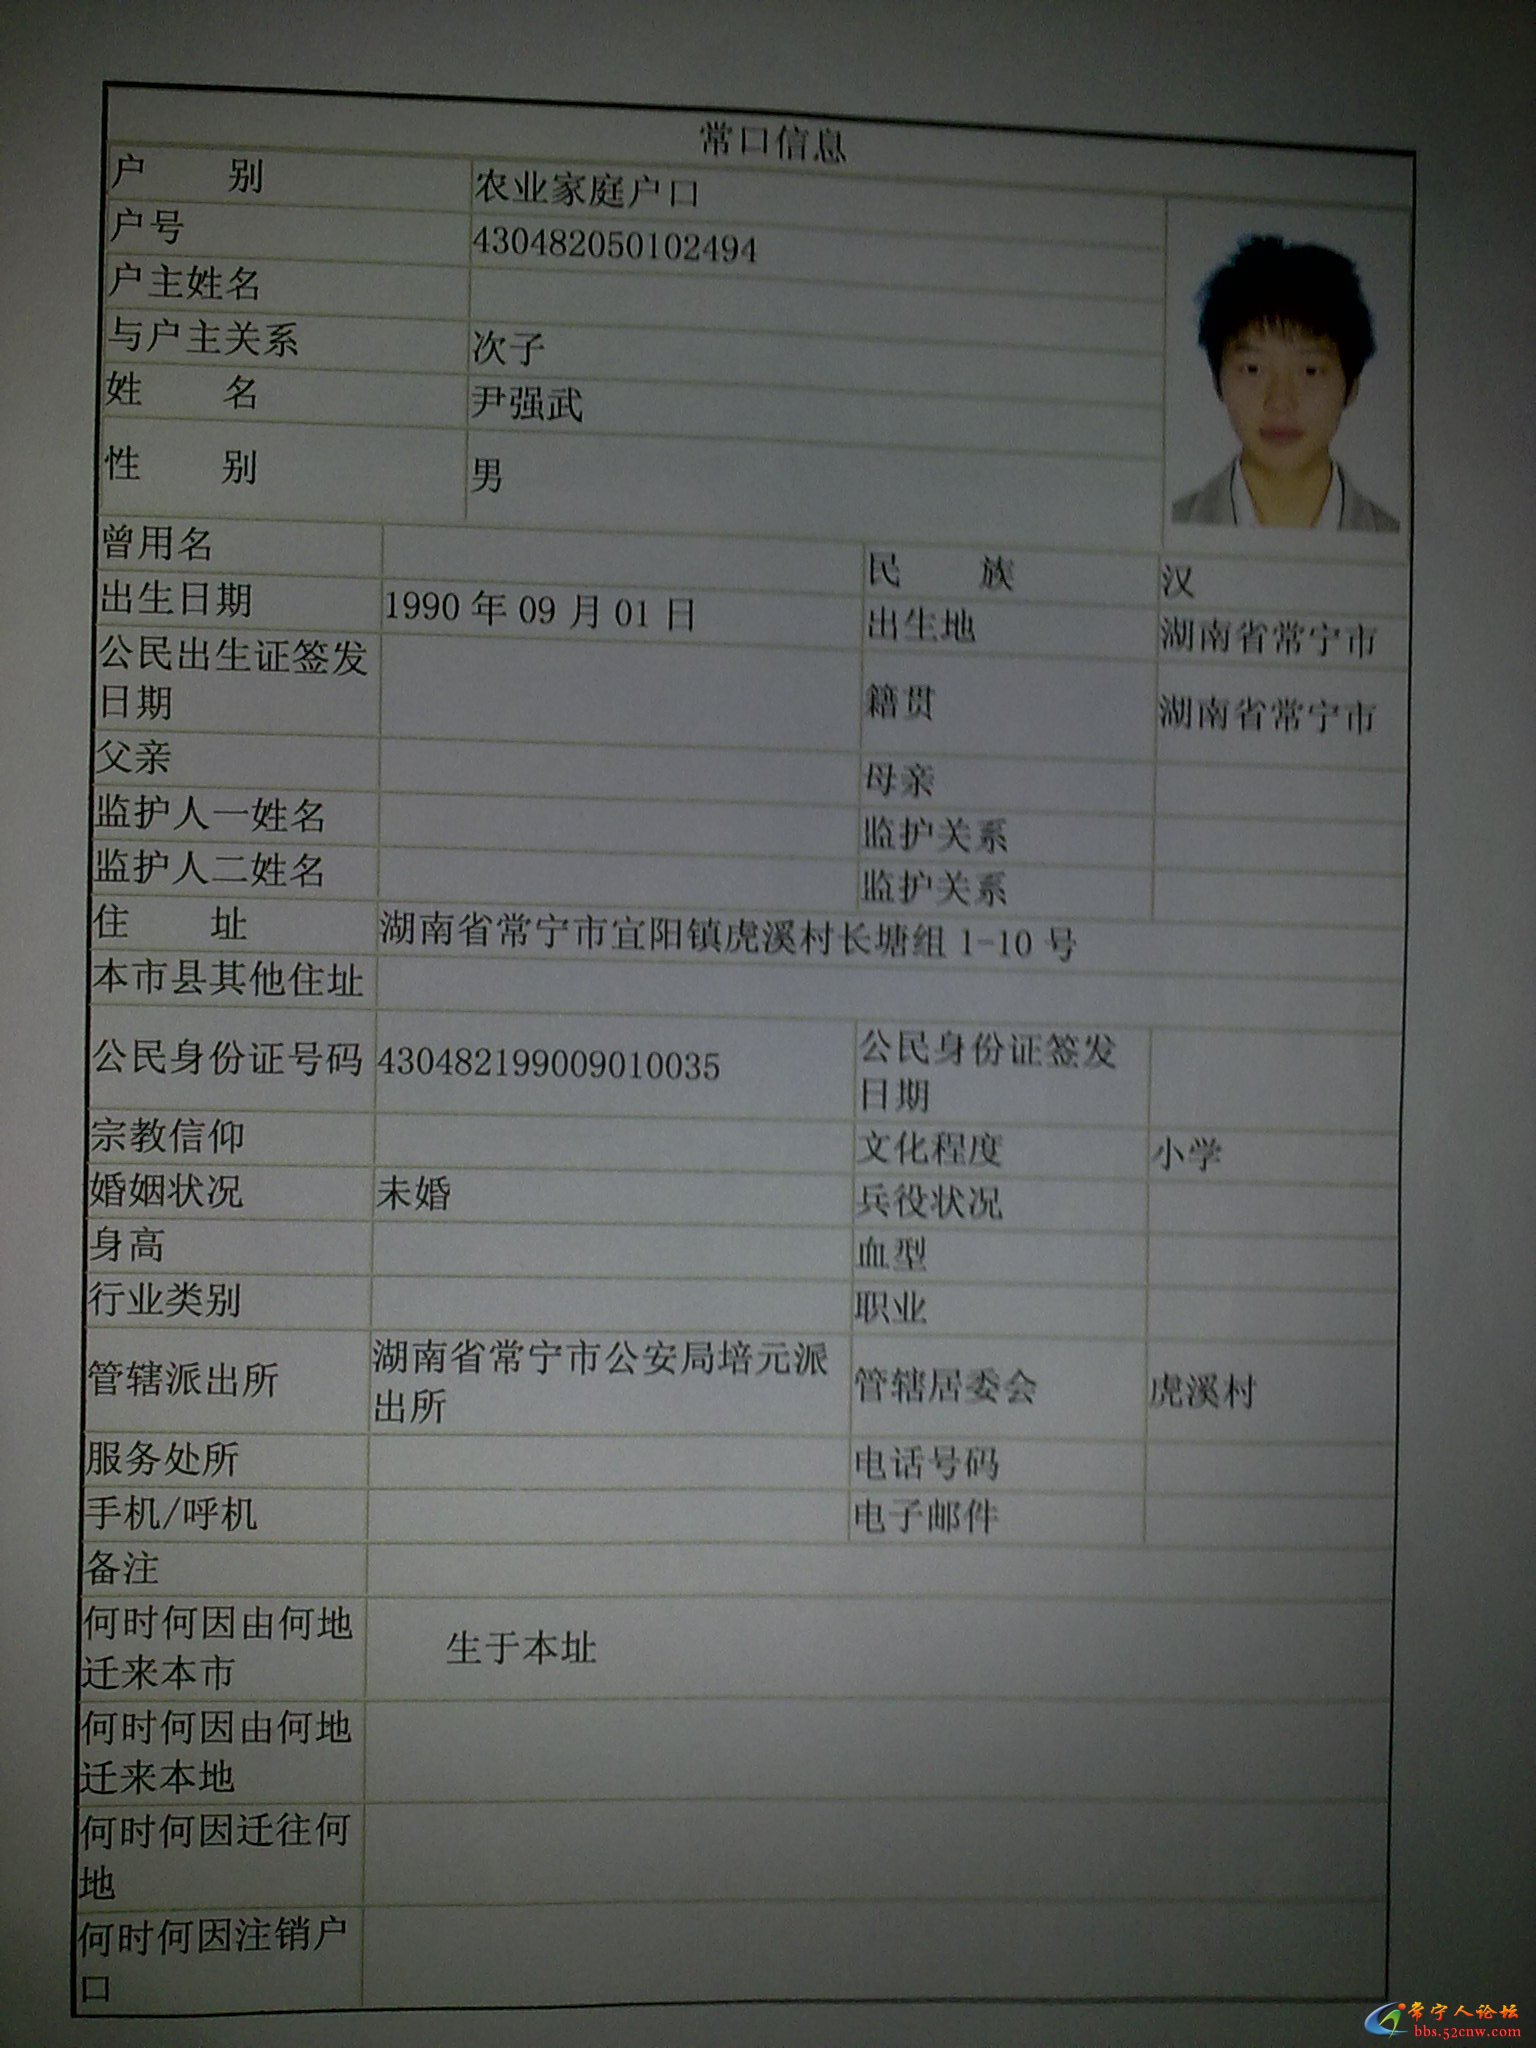 常口信息
户 别 农业家庭户口
户号 430482050102494
户主姓名
与户主关系 次子
姓 名 尹强武
性 别 男
曾用名 民 族 汉
出生日期 1990 年 09 月 01 日 出生地 湖南省常宁市
公民出生证签发
日期 籍贯 湖南省常宁市
父亲 母亲
监护人一姓名 监护关系
监护人二姓名 监护关系
住 址 湖南省常宁市宜阳镇虎溪村长塘组 1-10 号
本市县其他住址
公民身份证号码 430482199009010035 公民身份证签发
日期
宗教信仰 文化程度 小学
婚姻状况 未婚 兵役状况
身高 血型
行业类别 职业
管辖派出所 湖南省常宁市公安局培元派
出所 管辖居委会 虎溪村
服务处所 电话号码
手机/呼机 电子邮件
备注
何时何因由何地
迁来本市 生于本址
何时何因由何地
迁来本地
何时何因迁往何
地
何时何因注销户
口
常宁人论坛
bbs.52cnw.com